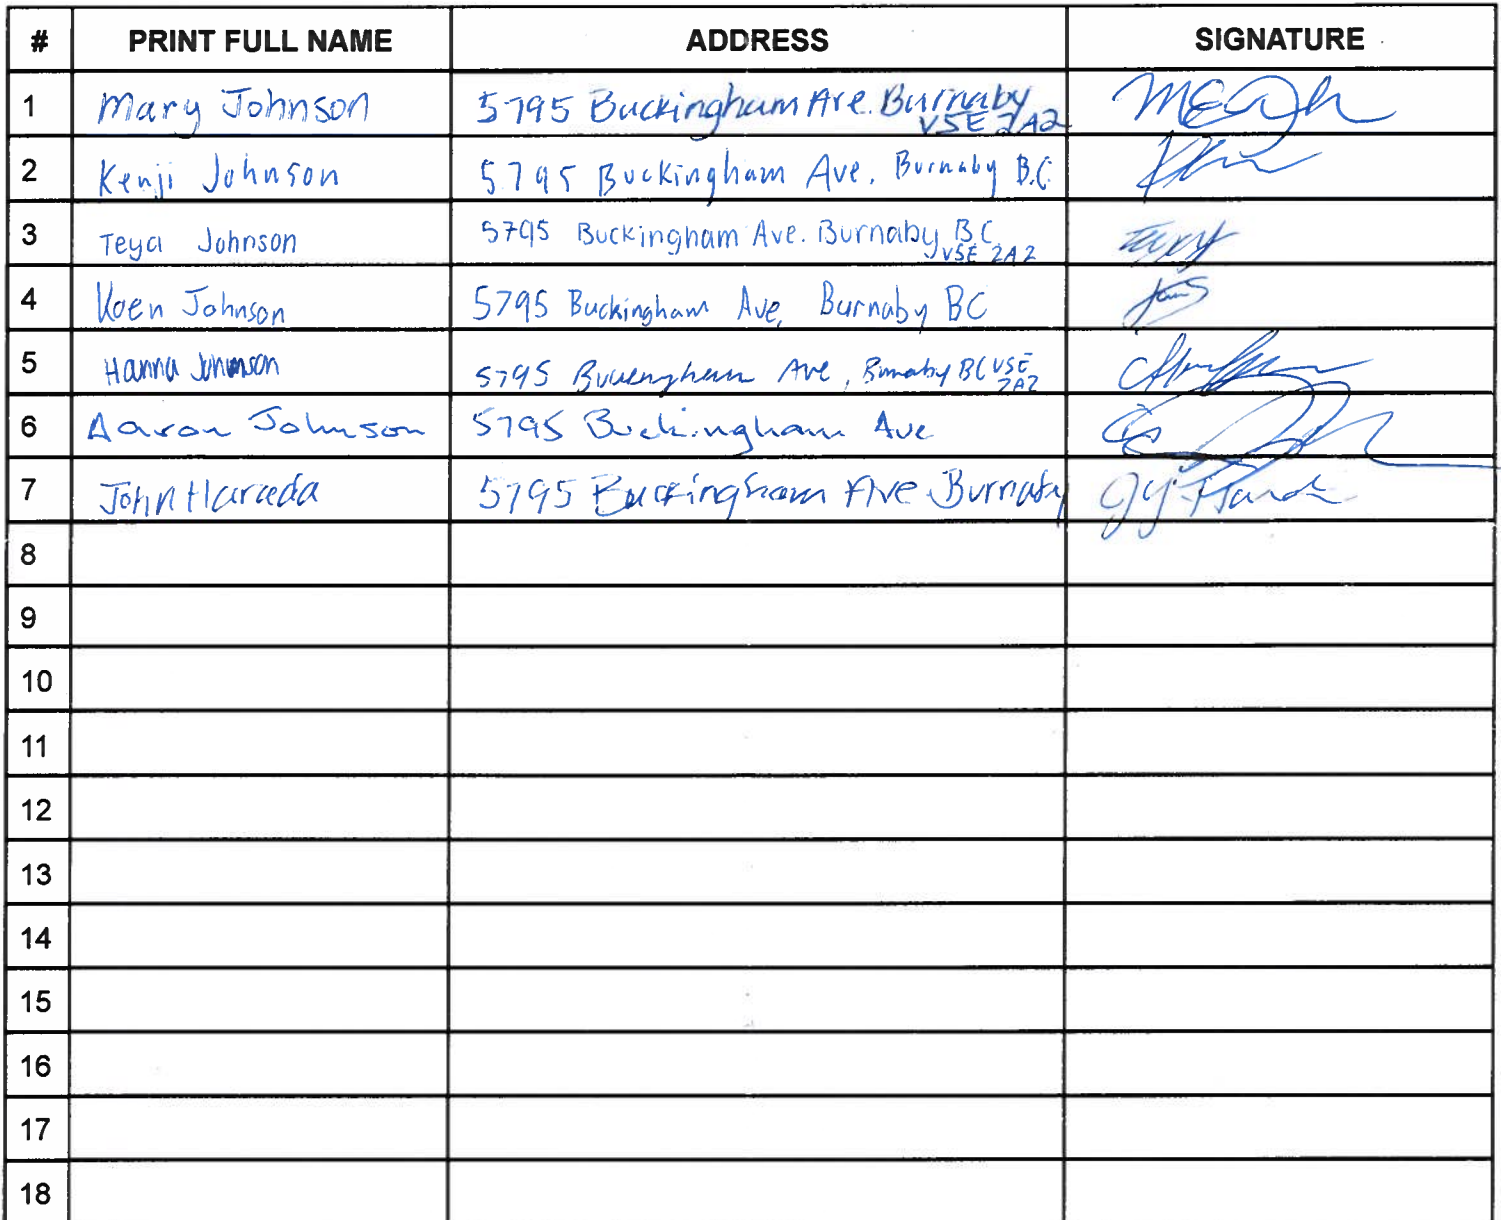 # PRINT FULL NAME ADDRESS SIGNATURE
1 Mary Johnson 5795 Buckingham Ave. Burnaby
V5E 2A2
2 Kenji Johnson 5795 Buckingham Ave, Burnaby B.C.
3 Teya Johnson 5795 Buckingham Ave. Burnaby BC
V5E 2A2
4 Koen Johnson 5795 Buckingham Ave, Burnaby BC
5 Hanna Johnson 5795 Buckingham Ave, Burnaby BC V5E
2A2
6 Aaron Johnson 5795 Buckingham Ave
7 John Harada 5795 Buckingham Ave Burnaby
8
9
10
11
12
13
14
15
16
17
18